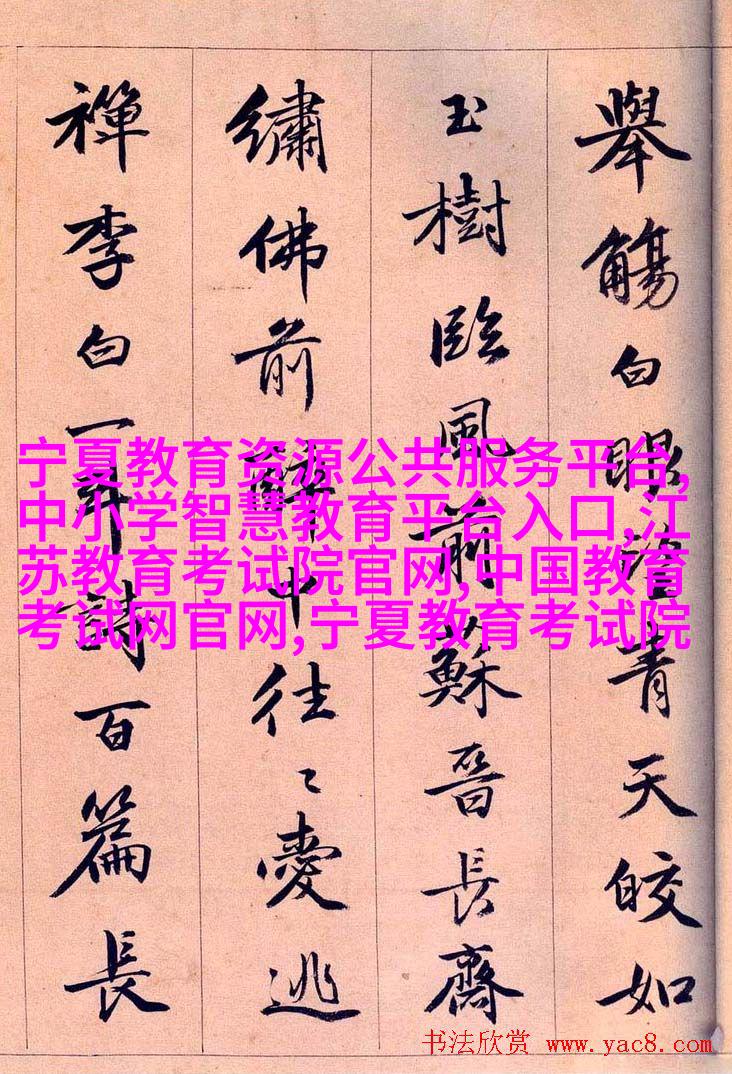 舉觴白眼望青天皎如
玉樹臨風前蘇晉長齋
繡佛前醉中往〻愛逃
禪李白一斗詩百篇長
宁夏教育资源公共服务平台,
中小学智慧教育平台入口,江
苏教育考试院官网,中国教育
考试网官网,宁夏教育考试院
书法欣赏 www.yac8.com